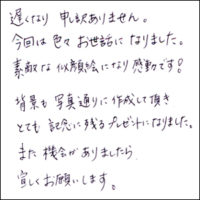 遅くなり 申し訳ありません。
今回は色々お世話になりました。
素敵な似顔絵になり感動です!
背景も写真通りに作成して頂き
とても記念に残るプレゼントになりました。
また機会がありましたら
宜しくお願いします。